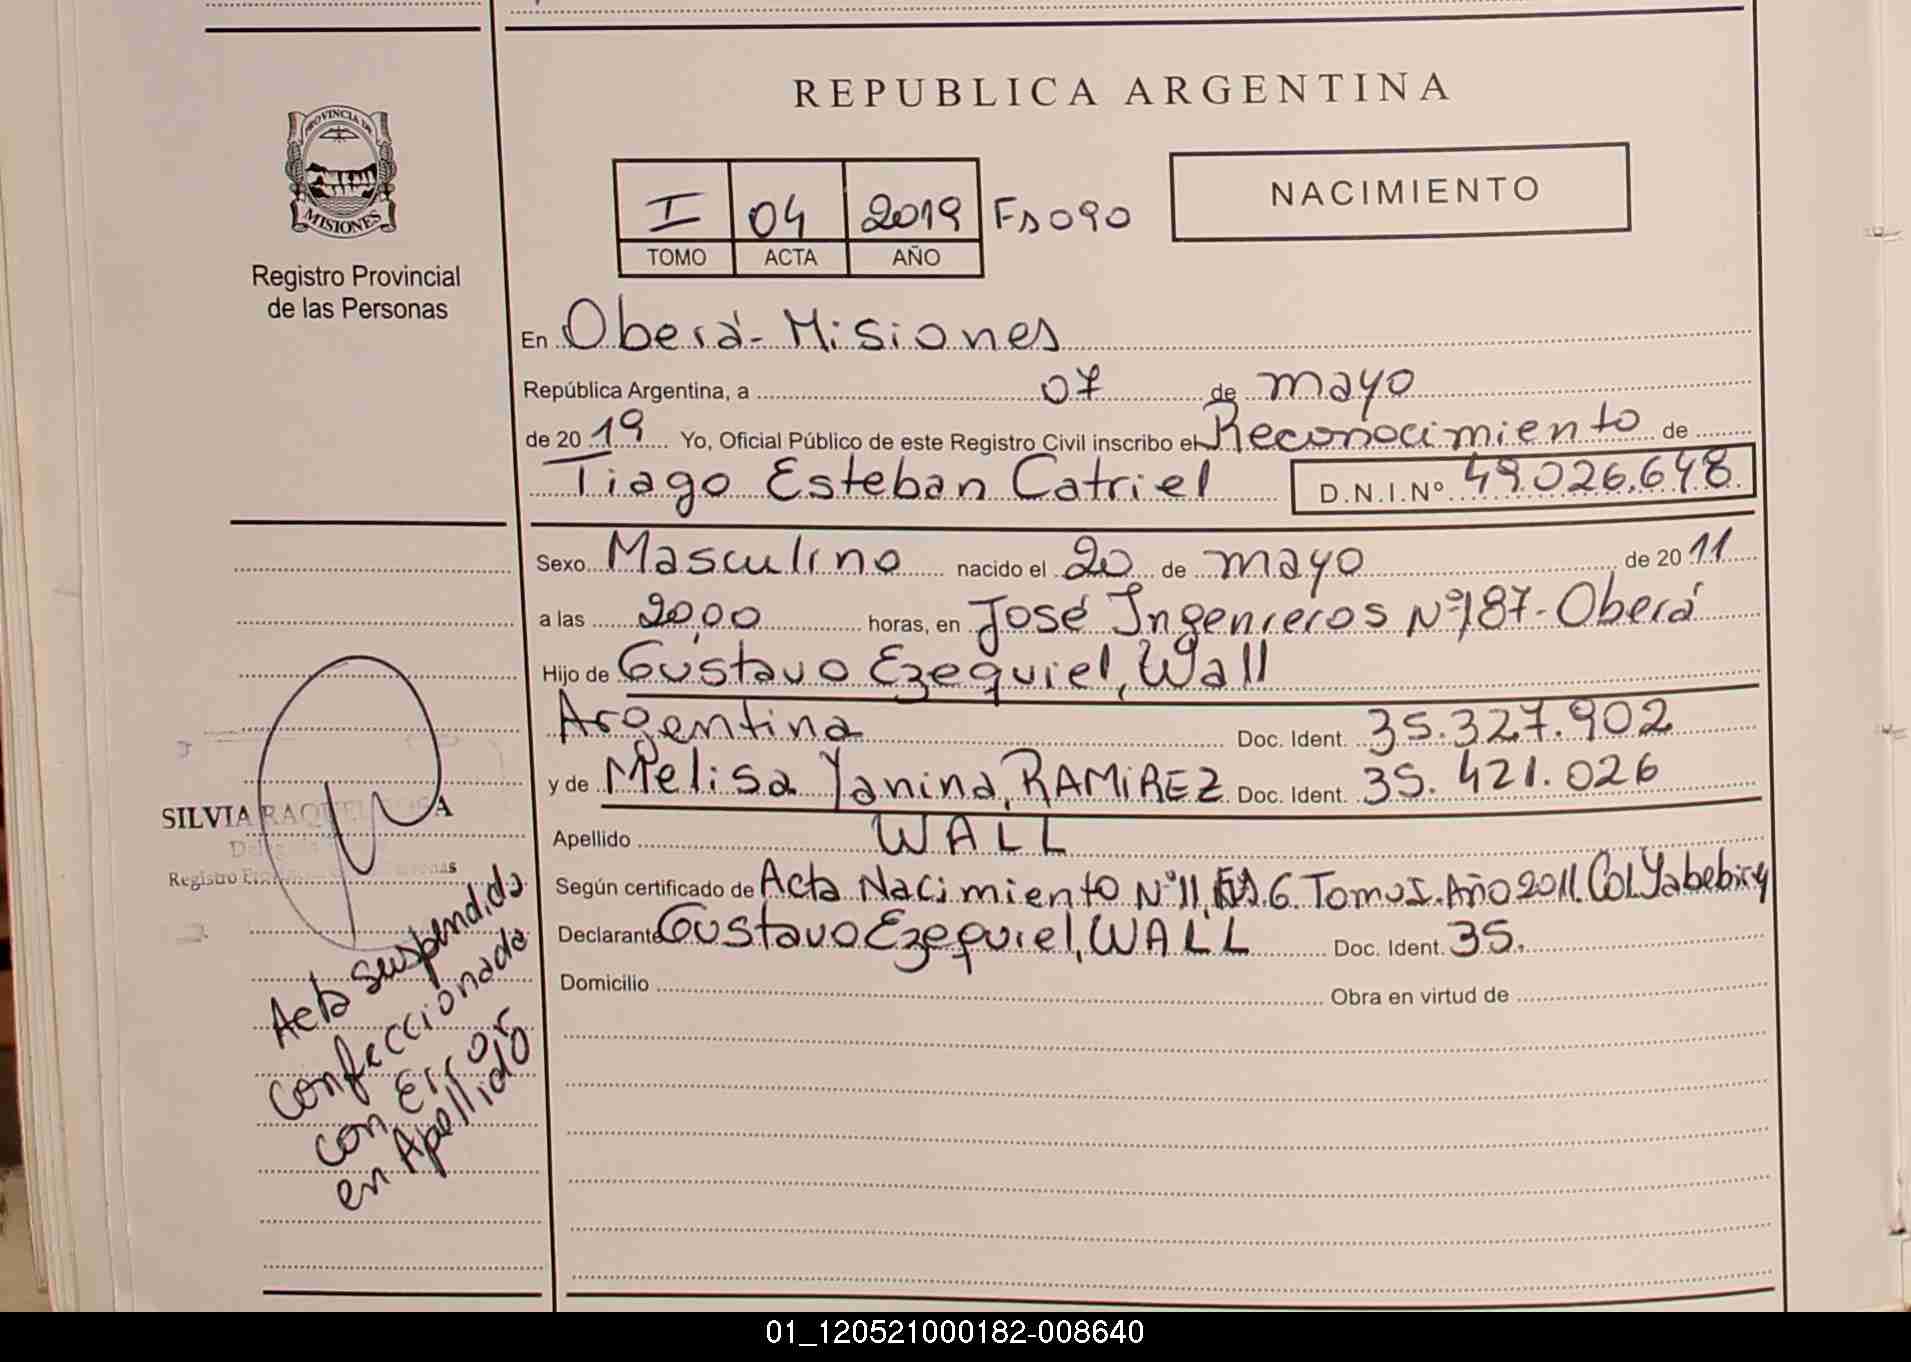 REPUBLICA ARGENTINA
PROVINCIA DE
MISIONES
Registro Provincial
de las Personas
I 04 2019 Fs 090
TOMO ACTA AÑO
NACIMIENTO
En Oberá - Misiones
República Argentina, a 07 de mayo
de 20 19 Yo, Oficial Público de este Registro Civil inscribo el Reconocimiento de
Tiago Esteban Catriel D.N.I.Nº 49.026.648
Sexo Masculino nacido el 20 de mayo de 20 11
a las 20,00 horas, en José Ingenieros Nº 187 - Oberá
Hijo de Gustavo Ezequiel, Wall
Argentina Doc. Ident. 35.327.902
y de Melisa Yanina, RAMIREZ Doc. Ident. 35.421.026
Apellido WALL
Según certificado de Acta Nacimiento Nº 11, Fs 6. Tomo I. Año 2011. Col Yabebiry
Declarante Gustavo Ezequiel, WALL Doc. Ident. 35.
Domicilio Obra en virtud de
SILVIA RAQUEL
Registro
Acta suspendida
confeccionada
con Error
en Apellido
01_120521000182-008640